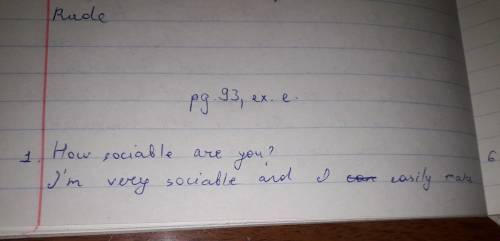 Rude
pg. 93, ex. e.
1. How sociable are you?
I'm very sociable and I can easily make
6